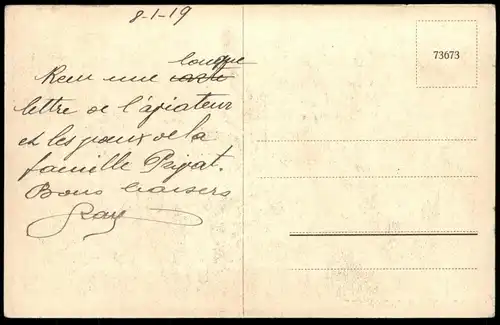 8-1-19
longue
Recu une carte
lettre de l'aviateur
et les voeux de la
famille Privat.
Bons baisers
Ray
73673